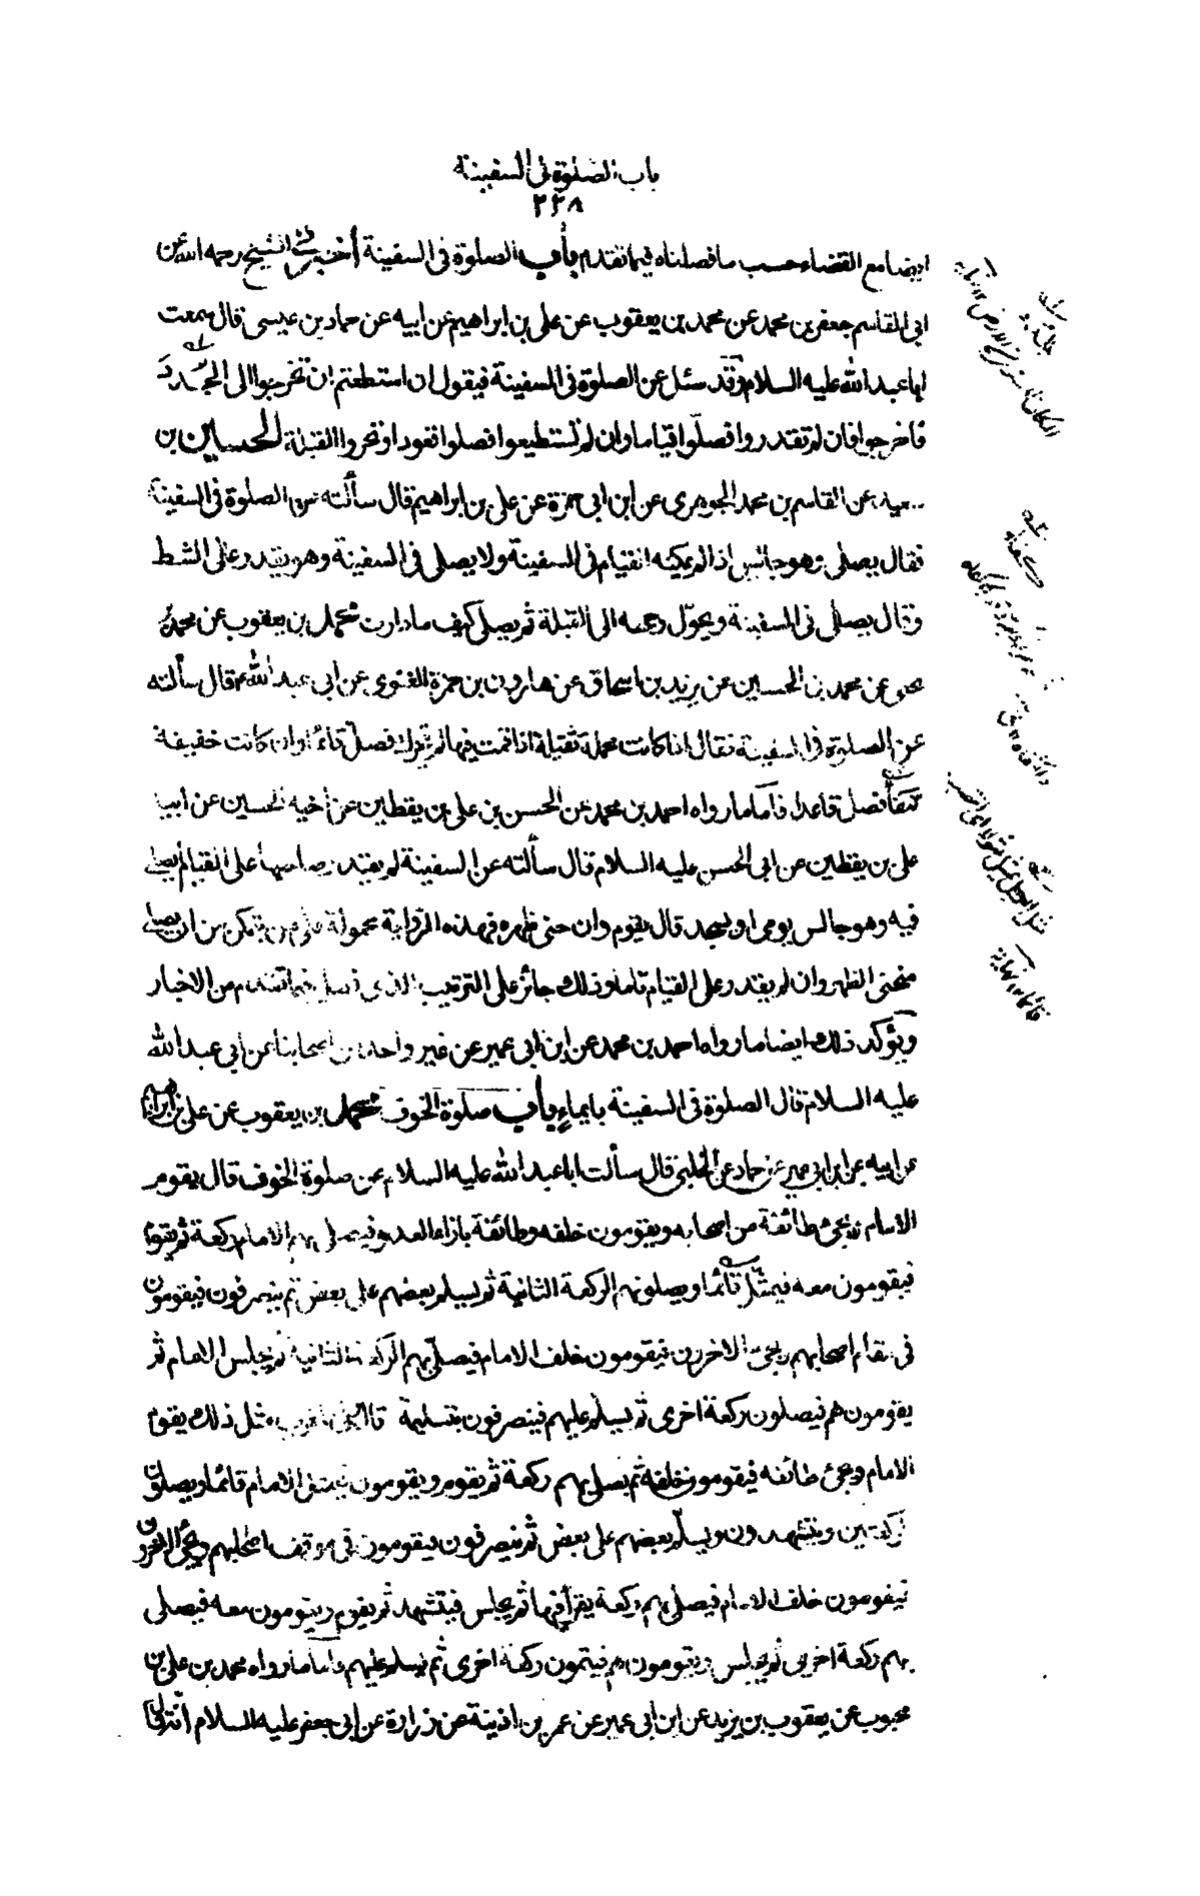 باب الصلوة فى السفينة
٢٢٨
ايضا مع القضاء حسب ما فصلناه فيما تقدم باب الصلوة فى السفينة أخبرنى الشيخ رحمه الله عن
ابى القاسم جعفر بن محمد عن محمد بن يعقوب عن على بن ابراهيم عن ابيه عن حماد بن عيسى قال سمعت
ابا عبد الله عليه السلام وقد سئل عن الصلوة فى السفينة فيقول ان استطعتم ان تخرجوا الى
فاخرجوا فان لم تقدروا فصلوا قياما وان لم تستطيعوا فصلوا قعودا وتحروا القبلة الحسين بن
سعيد عن القاسم بن محمد الجوهرى عن ابن ابى حمزة عن على بن ابراهيم قال سألته عن الصلوة فى السفينة
فقال يصلى وهو جالس اذا لم يمكنه القيام فى السفينة ولا يصلى فى السفينة وهو يقدر على الشط
وقال يصلى فى السفينة ويحول وجهه الى القبلة ثم يصلى كيف ما دارت محمد بن يعقوب عن محمد بن
يحيى عن محمد بن الحسين عن يزيد بن اسحاق عن هارون بن حمزة الغنوى عن ابى عبد الله ع قال سألته
عن الصلوة فى السفينة فقال اذا كانت محملة ثقيلة اذا قمت فيها لم تحرك فصل قائما وان كانت خفيفة
تكفأ فصل قاعدا فاما ما رواه احمد بن محمد عن الحسن بن على بن يقطين عن أخيه الحسين عن ابيه
على بن يقطين عن ابى الحسن عليه السلام قال سألته عن السفينة لم يقدر صاحبها على القيام يصلى
فيه وهو جالس يومى او يسجد قال يقوم وان حنى ظهره فهذه الرواية محمولة على من يتمكن من ان يصلى
منحنى الظهر وان لم يقدر على القيام تاما وذلك جائز على الترتيب الذى فيما تقدم من الاخبار
ويؤكد ذلك ايضا ما رواه احمد بن محمد عن ابن ابى عمير عن غير واحد من اصحابنا عن ابى عبد الله
عليه السلام قال الصلوة فى السفينة بايماء باب صلوة الخوف محمد بن يعقوب عن على بن ابراهيم
عن ابيه عن ابن ابى عمير عن حماد عن الحلبى قال سألت ابا عبد الله عليه السلام عن صلوة الخوف قال يقوم
الامام وتجئ طائفة من اصحابه ويقومون خلفه وطائفة بازاء العدو فيصلى بهم الامام ركعة ثم يقوم
فيقومون معه فيمثل قائما ويصلون هم الركعة الثانية ثم يسلم بعضهم على بعض ثم ينصرفون فيقومون
فى مقام اصحابهم ويجئ الاخرون فيقومون خلف الامام فيصلى بهم الركعة الثانية ثم يجلس الامام ثم
يقومون هم فيصلون ركعة اخرى ثم يسلم عليهم فينصرفون بتسليمة قال مثل ذلك يقوم
الامام وتجئ طائفه فيقومون خلفه ثم يصلى بهم ركعة ثم يقوم ويقومون فيمثل الامام قائما ويصلون
ركعتين ويتشهدون ويسلم بعضهم على بعض ثم ينصرفون فيقومون فى موقف اصحابهم وتجئ الاخرون
فيقومون خلف الامام فيصلى بهم ركعة يقرأ فيها ثم يجلس فيتشهد ثم يقوم ويقومون معه فيصلى
بهم ركعة اخرى ثم يجلس ويقومون هم فيتمون ركعة اخرى ثم يسلم عليهم واما ما رواه محمد بن على بن
محبوب عن يعقوب بن يزيد عن ابن ابى عمير عن عمر بن اذينة عن زرارة عن ابى جعفر عليه السلام أنه قال